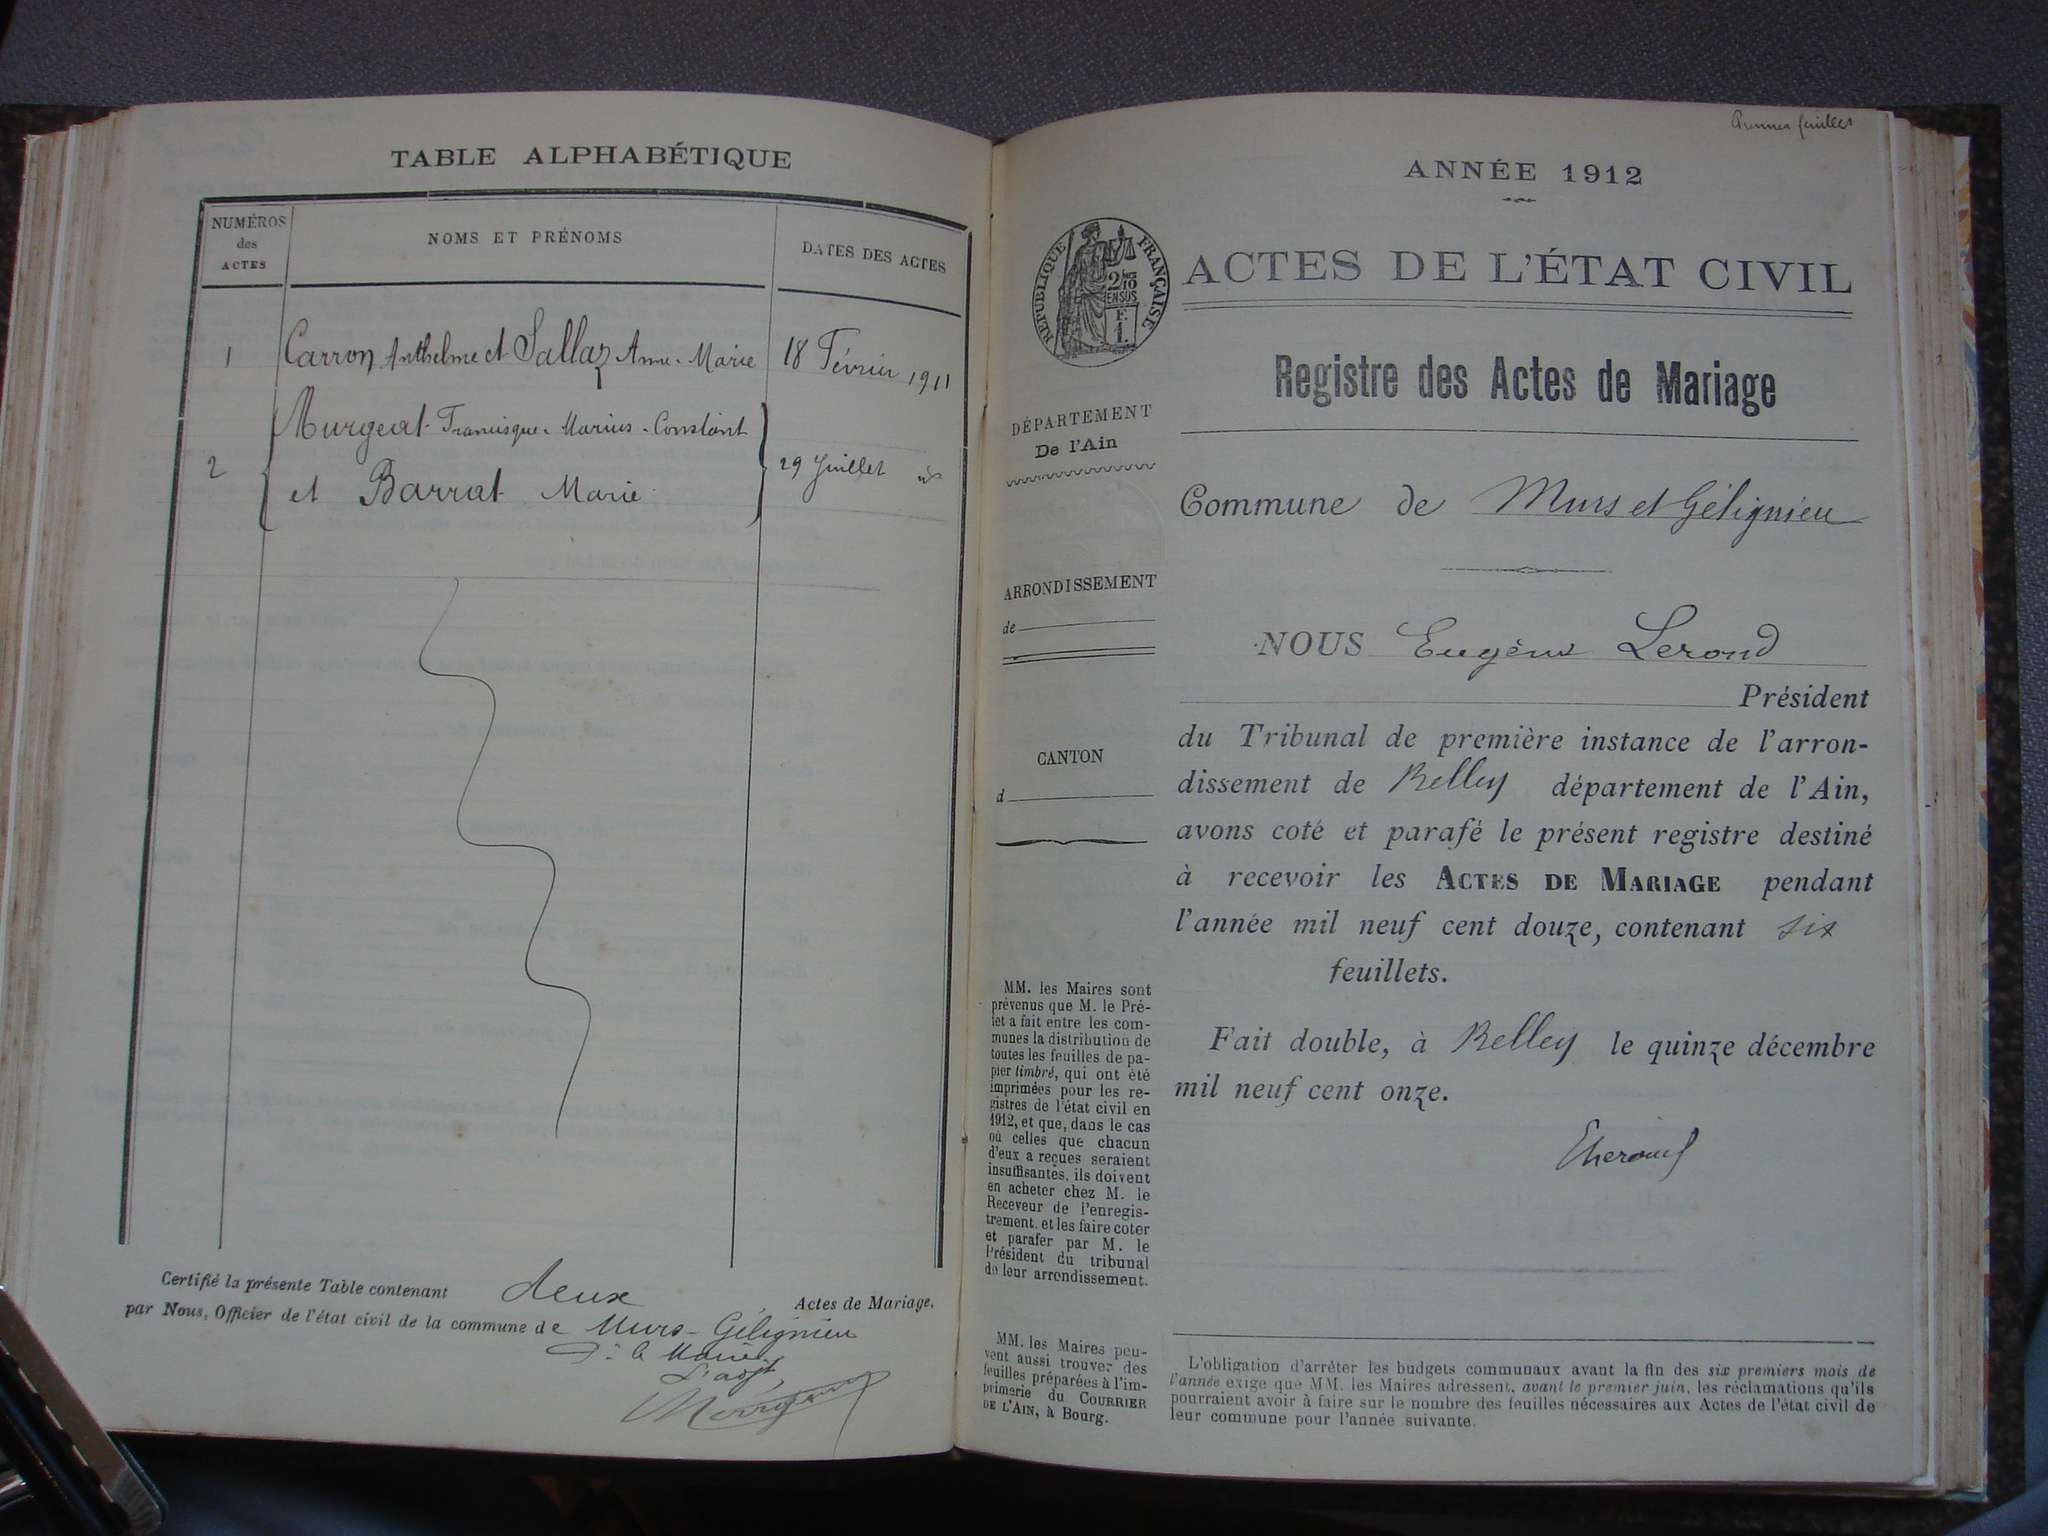 TABLE ALPHABÉTIQUE
NUMÉROS
des
ACTES
NOMS ET PRÉNOMS
DATES DES ACTES
1 Carron Anthelme et Sallaz Anne-Marie 18 Février 1911
Murgeat Francisque-Marius-Constant
2 et Barrat Marie 29 Juillet
Certifié la présente Table contenant deux Actes de Mariage,
par Nous, Officier de l'état civil de la commune de Murs-Gélignieu
L'adjt
Premier feuillet
ANNÉE 1912
RÉPUBLIQUE FRANÇAISE
2/10
EN SUS
F.
1.
ACTES DE L'ÉTAT CIVIL
Registre des Actes de Mariage
DÉPARTEMENT
De l'Ain
ARRONDISSEMENT
de
CANTON
d
MM. les Maires sont
prévenus que M. le Pré-
fet a fait entre les com-
munes la distribution de
toutes les feuilles de pa-
pier timbré, qui ont été
imprimées pour les re-
gistres de l'état civil en
1912, et que, dans le cas
où celles que chacun
d'eux a reçues seraient
insuffisantes, ils doivent
en acheter chez M. le
Receveur de l'enregis-
trement, et les faire coter
et parafer par M. le
Président du tribunal
de leur arrondissement.
MM. les Maires peu-
vent aussi trouver des
feuilles préparées à l'im-
primerie du COURRIER
DE L'AIN, à Bourg.
Commune de Murs et Gélignieu
NOUS Eugène Lerond
Président
du Tribunal de première instance de l'arron-
dissement de Belley département de l'Ain,
avons coté et parafé le présent registre destiné
à recevoir les ACTES DE MARIAGE pendant
l'année mil neuf cent douze, contenant six
feuillets.
Fait double, à Belley le quinze décembre
mil neuf cent onze.
L'obligation d'arrêter les budgets communaux avant la fin des six premiers mois de
l'année exige que MM. les Maires adressent, avant le premier juin, les réclamations qu'ils
pourraient avoir à faire sur le nombre des feuilles nécessaires aux Actes de l'état civil de
leur commune pour l'année suivante.